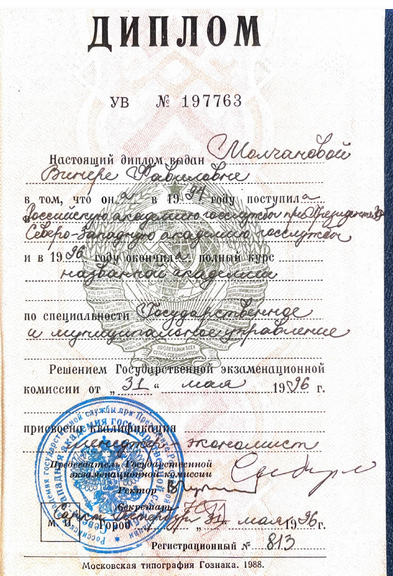 ДИПЛОМ
УВ № 197763
Настоящий диплом выдан Молчановой
Винере Равиловне
в том, что она в 1994 году поступила
Российскую академию госслужбы при Президенте РФ
Северо-Западную академию госслужбы
и в 1996 году окончила полный курс
названной академии
по специальности Государственное
и муниципальное управление
Решением Государственной экзаменационной
комиссии от „31“ мая 1996 г.
присвоена квалификация
менеджер-экономист
Председатель Государственной
экзаменационной комиссии
Ректор
Секретарь
М. П. Город Санкт-Петербург „31“ мая 1996 г.
Регистрационный № 813
Московская типография Гознака. 1988.